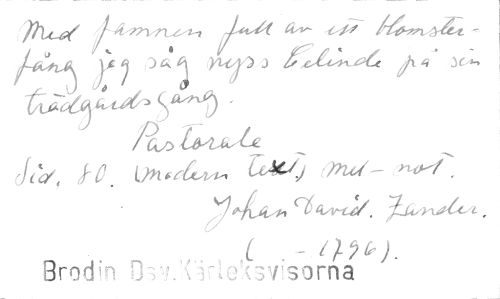 Med famnen full av ett blomster-
fång jag såg nyss Celinde på sin
trädgårdsgång.
Pastorale
Sid. 80. (modern text) mel-not.
Johan David. Zander.
( - 1796).
Brodin Dav. Kärleksvisorna